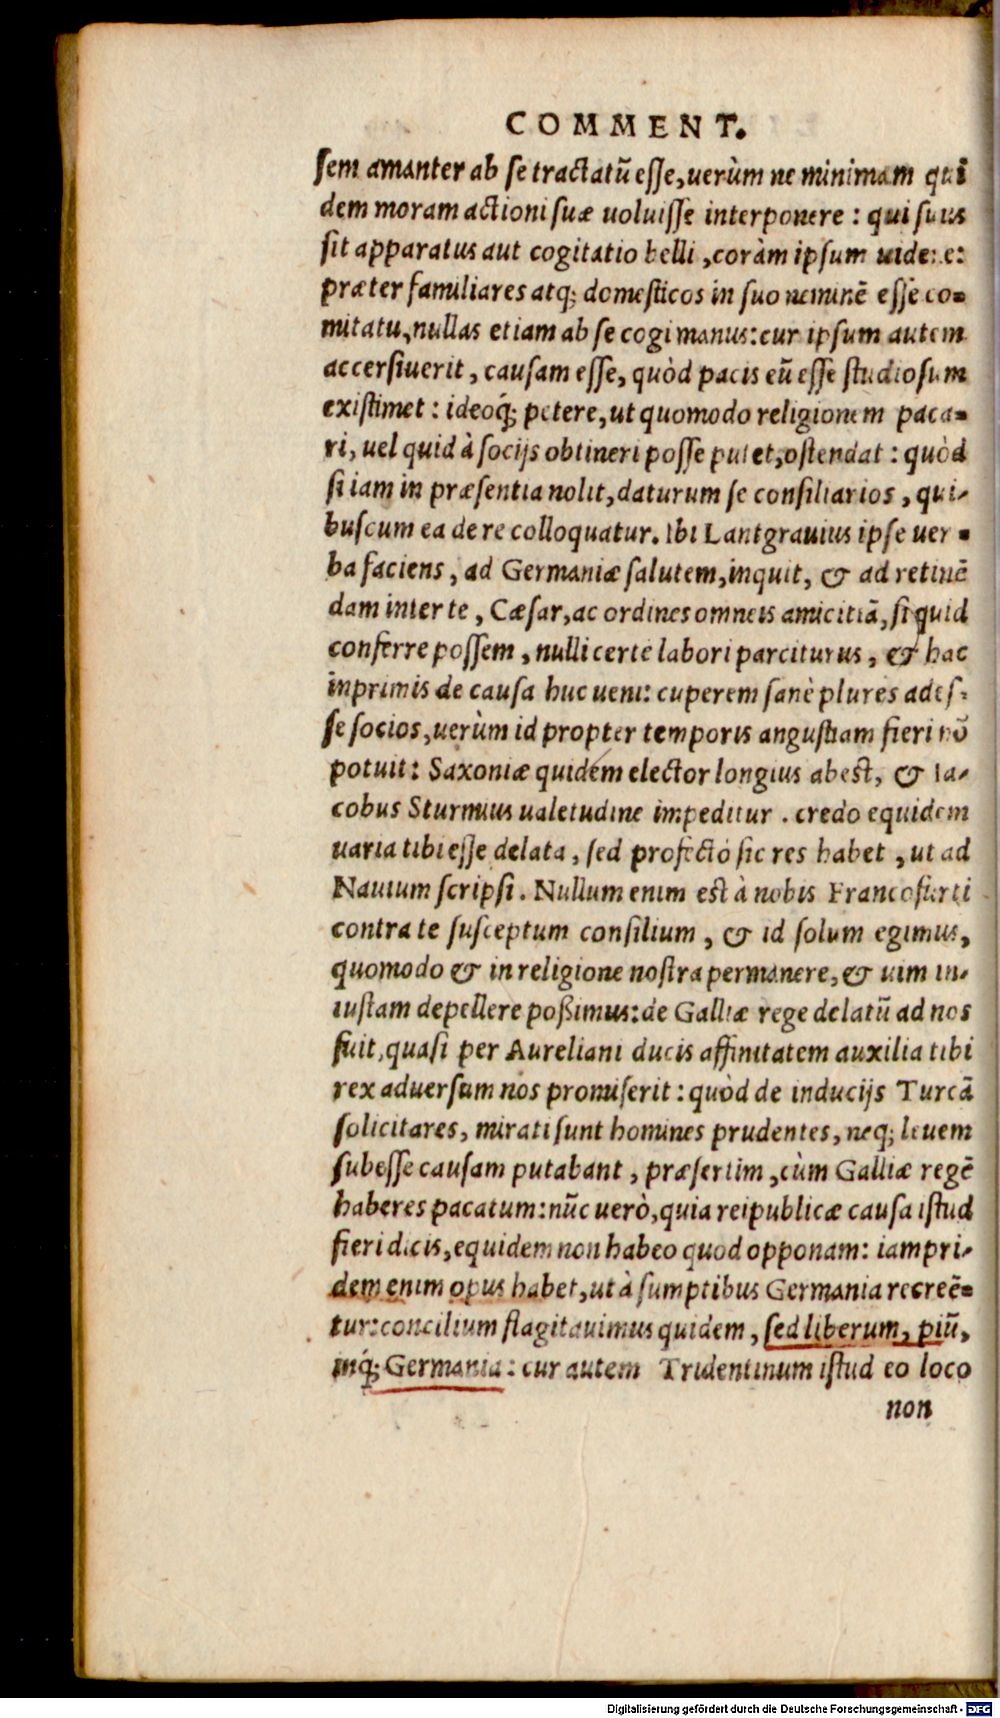 COMMENT.
sem amanter ab se tractatū esse, uerùm ne minimam qui
dem moram actioni suæ uoluisse interponere : qui suus
sit apparatus aut cogitatio belli , coràm ipsum uidere:
præter familiares atq; domesticos in suo neminē esse co-
mitatu, nullas etiam ab se cogi manus: cur ipsum autem
accersiuerit , causam esse, quòd pacis eū esse studiosum
existimet : ideoq́; petere, ut quomodo religionem paca-
ri, uel quid à socijs obtineri posse putet, ostendat : quòd
si iam in præsentia nolit, daturum se consiliarios , qui-
buscum ea de re colloquatur. Ibi Lantgrauius ipse uer-
ba faciens , ad Germaniæ salutem, inquit, & ad retinē
dam inter te , Cæsar, ac ordines omneis amicitiā, si quid
conferre possem , nulli certe labori parciturus , & hac
inprimis de causa huc ueni: cuperem sanè plures ades-
se socios, uerùm id propter temporis angustiam fieri nō
potuit: Saxoniæ quidem elector longius abest, & Ia-
cobus Sturmius ualetudine impeditur . credo equidem
uaria tibi esse delata , sed profectò sic res habet , ut ad
Nauium scripsi . Nullum enim est à nobis Francofurti
contra te susceptum consilium , & id solum egimus,
quomodo & in religione nostra permanere, & uim in-
iustam depellere poßimus: de Galliæ rege delatū ad nos
fuit, quasi per Aureliani ducis affinitatem auxilia tibi
rex aduersum nos promiserit : quòd de inducijs Turcā
solicitares, mirati sunt homines prudentes, neq; leuem
subesse causam putabant , præsertim , cùm Galliæ regē
haberes pacatum: nūc uerò, quia reipublicæ causa istud
fieri dicis, equidem non habeo quod opponam: iampri-
dem enim opus habet, ut à sumptibus Germania recreē-
tur: concilium flagitauimus quidem , sed liberum, piū,
inq́; Germania : cur autem Tridentinum istud eo loco
non
Digitalisierung gefördert durch die Deutsche Forschungsgemeinschaft - DFG